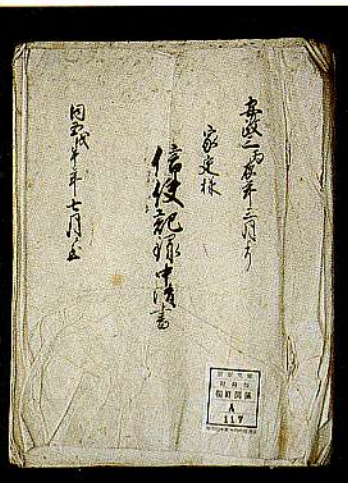 安政三丙辰年三月より
家定様
信使記録中清書
同五戊午年七月迄
A
117